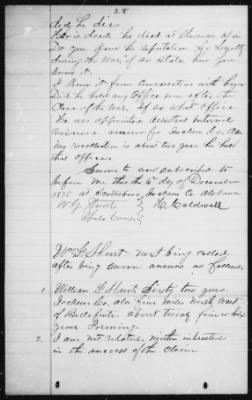 28
did he die.
He is dead he died at Stevenson Ala
Do you know his reputation for Loyalty
during the War, if so state how you
know it.
I knew it from conversation with him
Did he hold any Office soon after the
Close of the War. If so what office
He was appointed assistant Internal
revenue assessor for Jackson Co. Ala
My recollection is about two years he held
that office.
Sworn to and subscribed to
before me this the 6th day of December
1875 at Scottsboro, Jackson Co Alabama
W G Hunt H. Caldwell
Wm G Hunt next being called
after being sworn answers as follows.
1 William G Hunt, Sixty two years
Jackson Co. Ala five miles North West
of Bellefonte. about twenty five
years Farming.
2 I am not related, neither interested
in the success of the claim